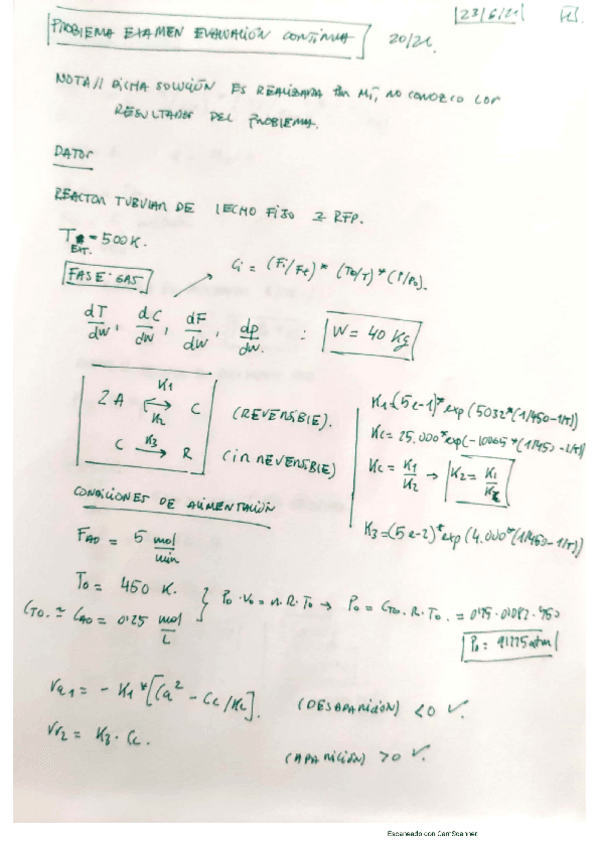 23/6/21
PROBLEMA EXAMEN EVALUACIÓN CONTINUA 20/21.
NOTA// DICHA SOLUCIÓN ES REALIZADA POR MÍ, NO CONOZCO LOS
RESULTADOS DEL PROBLEMA.
DATOS
REACTOR TUBULAR DE LECHO FIJO ≡ RFP.
T EXT. = 500 K.
FASE GAS → Ci = (Fi/Ft)* (To/T)*(P/Po).
dT/dW, dC/dW, dF/dW, dp/dW. : W = 40 Kg
2A K1 ⇄ K2 C (REVERSIBLE).
C K3 → R (IRREVERSIBLE)
K1=(5e-1)*exp(5032*(1/450-1/T))
Kc=25.000*exp(-10065*(1/450-1/T))
Kc = K1/K2 → K2 = K1/Kc
K3=(5e-2)*exp(4.000*(1/450-1/T))
CONDICIONES DE ALIMENTACIÓN
FA0 = 5 mol/min
To = 450 K.
CTO. ≃ CA0 = 0'25 mol/L
Po·Vo = n.R.To → Po = CTO.R.To. = 0'25·0'082·450
Po = 9'225 atm
ra1 = - K1*[Ca² - Cc/Kc]. (DESAPARICIÓN) <0 ✓.
rr2 = K3·Cc. (APARICIÓN) >0 ✓.
Escaneado con CamScanner